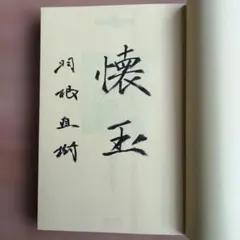 懐玉
羽根直樹